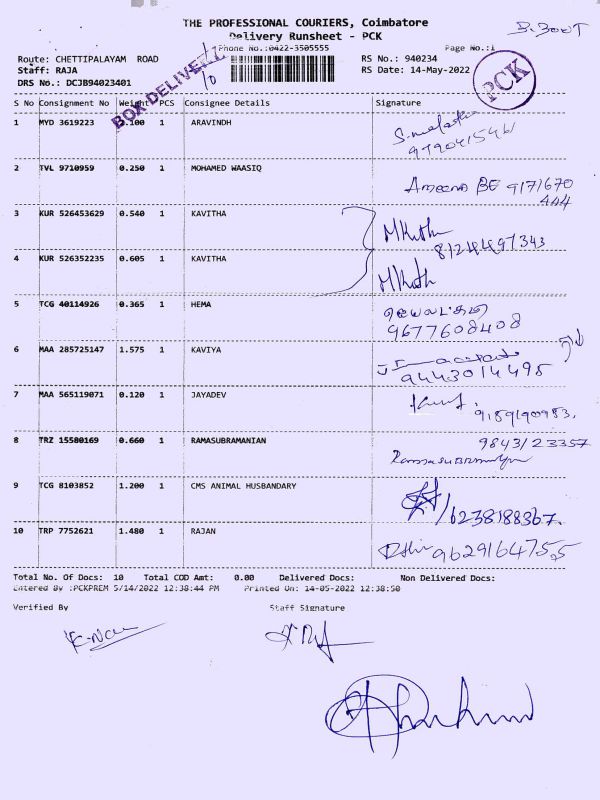 THE PROFESSIONAL COURIERS, Coimbatore
Delivery Runsheet - PCK
Phone No.:0422-3505555 Page No.:1
Route: CHETTIPALAYAM ROAD RS No.: 940234
Staff: RAJA RS Date: 14-May-2022
DRS No.: DCJB94023401
BOX DELIVERY
10
PCK
S No Consignment No Weight PCS Consignee Details Signature
1 MYD 3619223 .100 1 ARAVINDH
2 TVL 9710959 0.250 1 MOHAMED WAASIQ
Ameena BE 9171670
444
3 KUR 526453629 0.540 1 KAVITHA
8124497343
4 KUR 526352235 0.605 1 KAVITHA
5 TCG 40114926 0.365 1 HEMA
9677608408
6 MAA 285725147 1.575 1 KAVIYA
9443014495
7 MAA 565119071 0.120 1 JAYADEV
8 TRZ 15580169 0.660 1 RAMASUBRAMANIAN
9843123357
9 TCG 8103852 1.200 1 CMS ANIMAL HUSBANDARY
/6238188367.
10 TRP 7752621 1.480 1 RAJAN
Total No. Of Docs: 10 Total COD Amt: 0.00 Delivered Docs: Non Delivered Docs:
Entered By :PCKPREM 5/14/2022 12:38:44 PM Printed On: 14-05-2022 12:38:50
Verified By Staff Signature